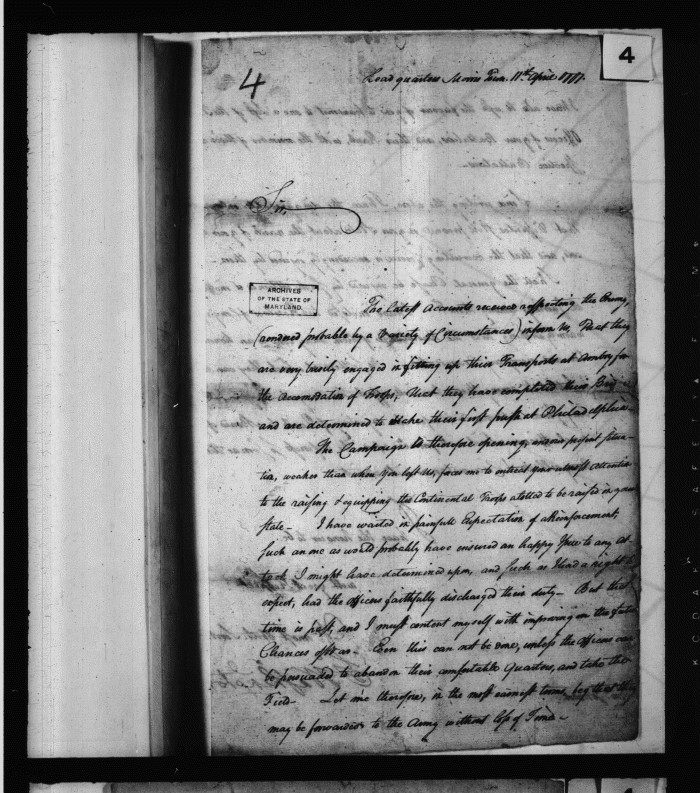 4
4
Head quarters Morris Town. 11th April 1777.
Sir,
ARCHIVES
OF THE STATE OF
MARYLAND
The latest Accounts received respecting the Enemy,
(rendered probable by a Variety of Circumstances) inform us, that they
are very busily engaged in fitting up their Transports at Amboy for
the Accomodation of Troops; that they have compleated their
and are determined to make their first push at Philadelphia.
The Campaign is therefore opening, and our present situa-
tion, weaker than when you left us, forces me to entreat your utmost attention
to the raising & equipping the Continental Troops allotted to be raised in your
State— I have waited in painfull Expectation of a Reinforcement,
such an one as would probably have ensured an happy Issue to any at-
tack I might have determined upon, and such as I had a right to
expect, had the Officers faithfully discharged their duty— But that
time is past, and I must content myself with improving on the future
Chances of War— Even this can not be done, unless the Officers can
be persuaded to abandon their comfortable Quarters, and take the
Field— Let me therefore, in the most earnest terms, beg that they
may be forwarded to the Army without loss of Time—